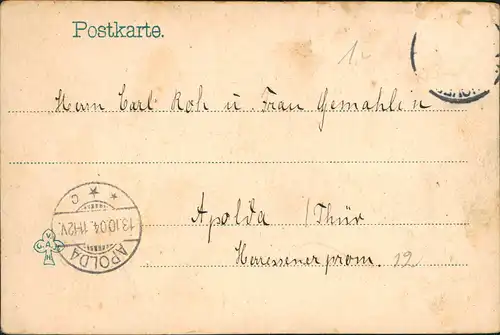 Postkarte.
1.-
Herrn Carl Koh u. Frau Gemahlin
Apolda / Thür
Heressenerprom. 12
APOLDA
13.10.04. 11-12V.
* * c